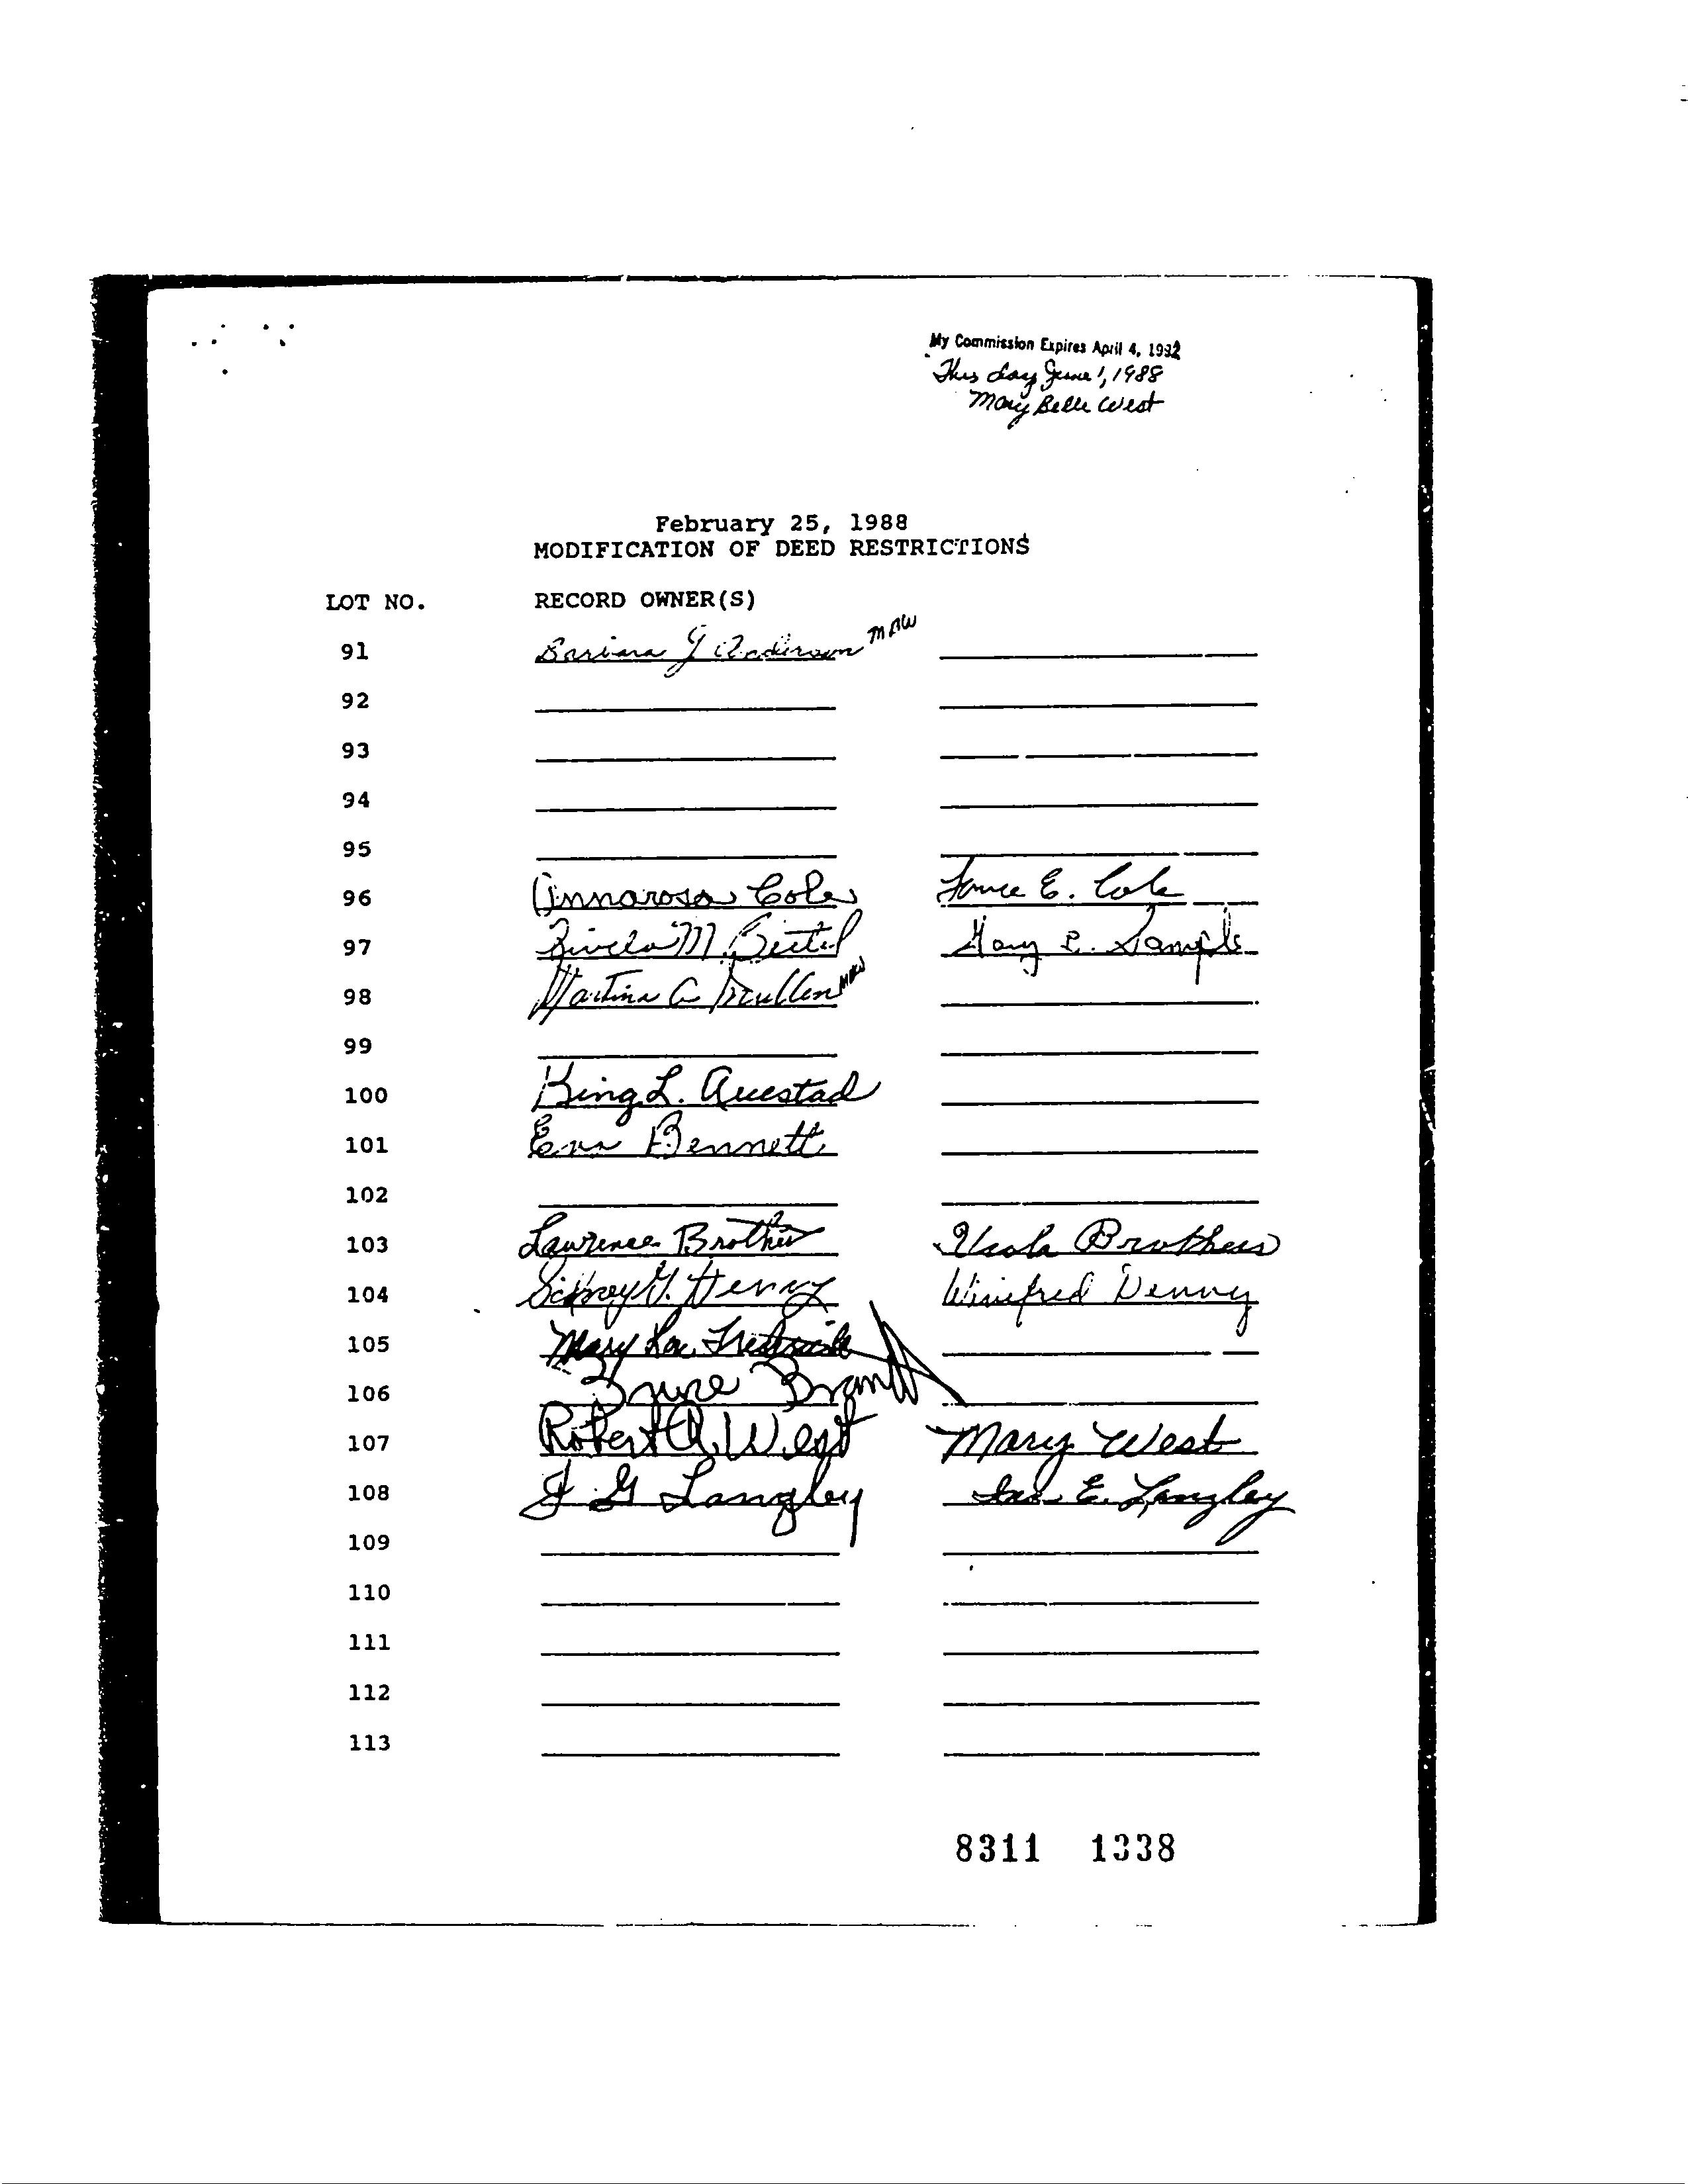 My Commission Expires April 4, 1992
This day June 1, 1988
Mary Belle West
February 25, 1988
MODIFICATION OF DEED RESTRICTIONS
LOT NO. RECORD OWNER(S)
91 Barbara J Anderson MAW
92
93
94
95
96 Annarosa Cole E. Cole
97 M. E. Sample
98 Martina A Mullen MAW
99
100 King L. Auestad
101 Eva Bennett
102
103 Lawrence Brothers Brothers
104 Sidney Denny Winifred Denny
105 Mary Lou
106 Bruce Brantt
107 Robert A. West Mary West
108 J G Langley E. Langley
109
110
111
112
113
8311 1338